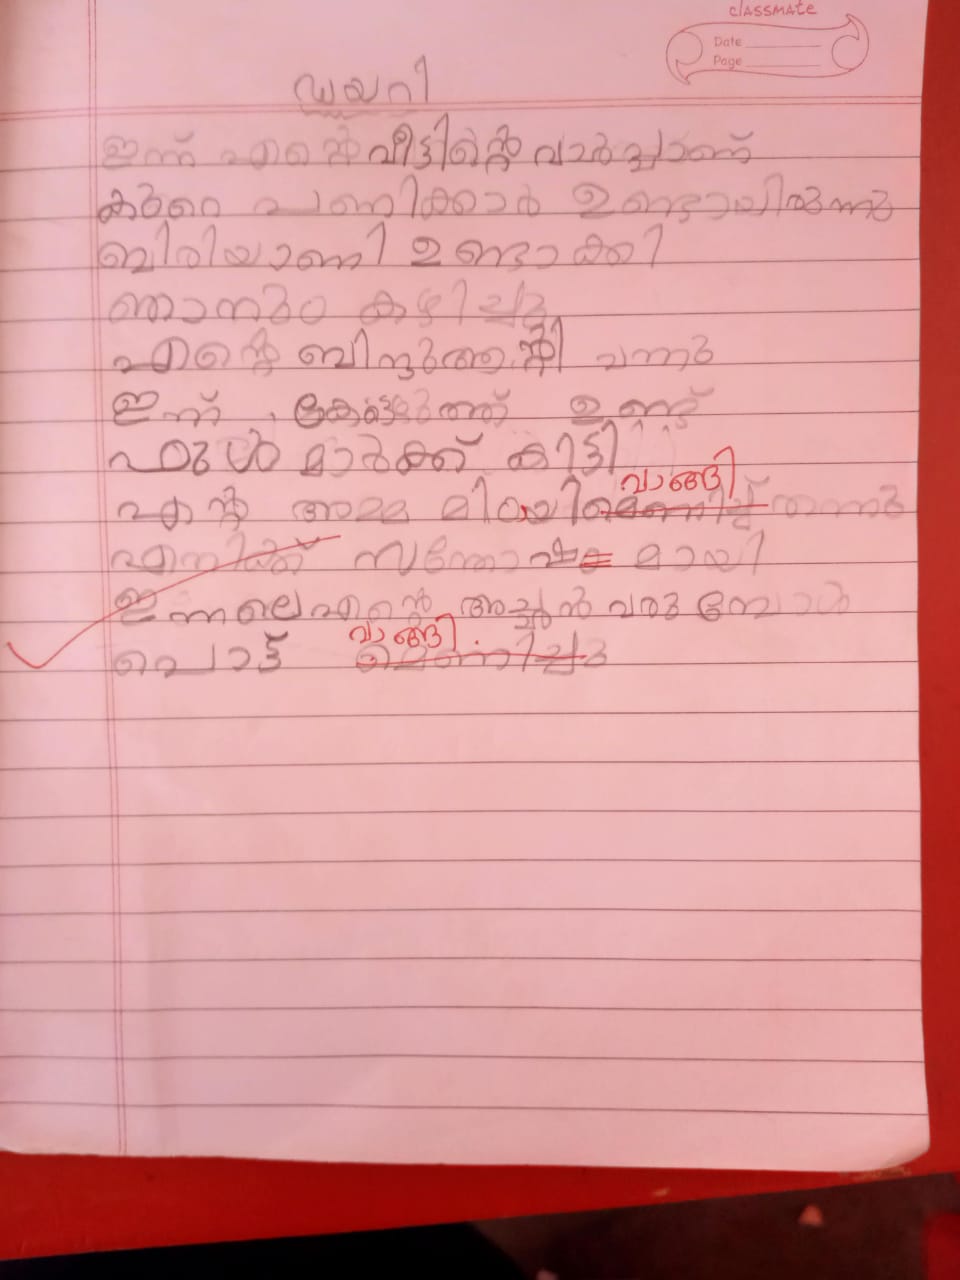 classmate
Date
Page
ഡയറി
ഇന്ന് എന്റെ വീട്ടിന്റെ വാർപ്പാണ്
കുറെ പണിക്കാർ ഉണ്ടായിരുന്നു
ബിരിയാണി ഉണ്ടാക്കി
ഞാനും കഴിച്ചു
എന്റെ ബിന്ദുആന്റി വന്നു
ഇന്ന് ഉണ്ട്
ഫുൾ മാർക്ക് കിട്ടി
വാങ്ങി
എന്റ അമ്മ മിഠായി തന്നു
എനിക്ക് സന്തോഷ മായി
ഇന്നലെ എന്റെ അച്ഛൻ വരുമ്പോൾ
വാങ്ങി
പൊട്ട് മേണിച്ചു